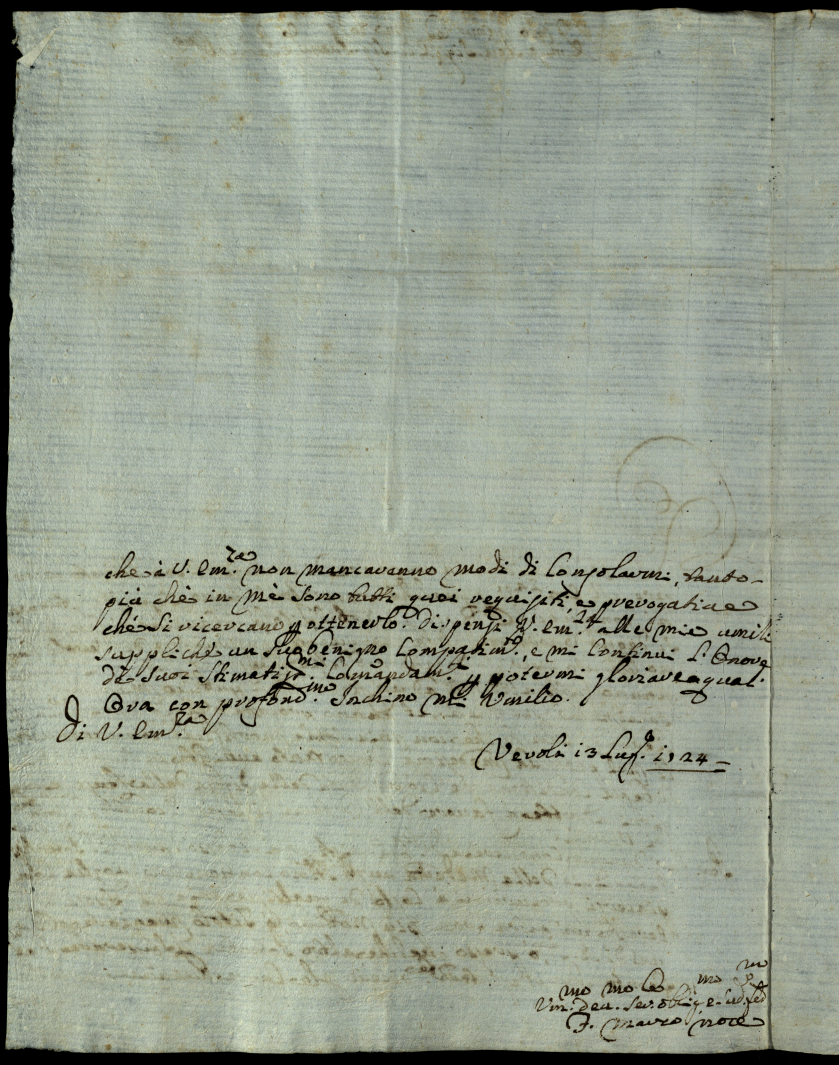 che à V. Em.za non mancaranno modi di Consolarmi, tanto-
più chè in mè sono tutti quei requisiti, e prerogative
chè si ricercano p ottenerlo. dispensi V. Em.za alle mie umili
suppliche un suo benigno Compatim.to, e mi Continui l'Onore
de suoi Stimatiss.mi Comandam.ti p potermi gloriare a qual.
Ora con profond.mo Inchino mi Umilio.
Di V. Em.za
Veroli 13 Lug.o 1724
Um.mo Dev.mo Obblig.mo
F. Mauro Noce